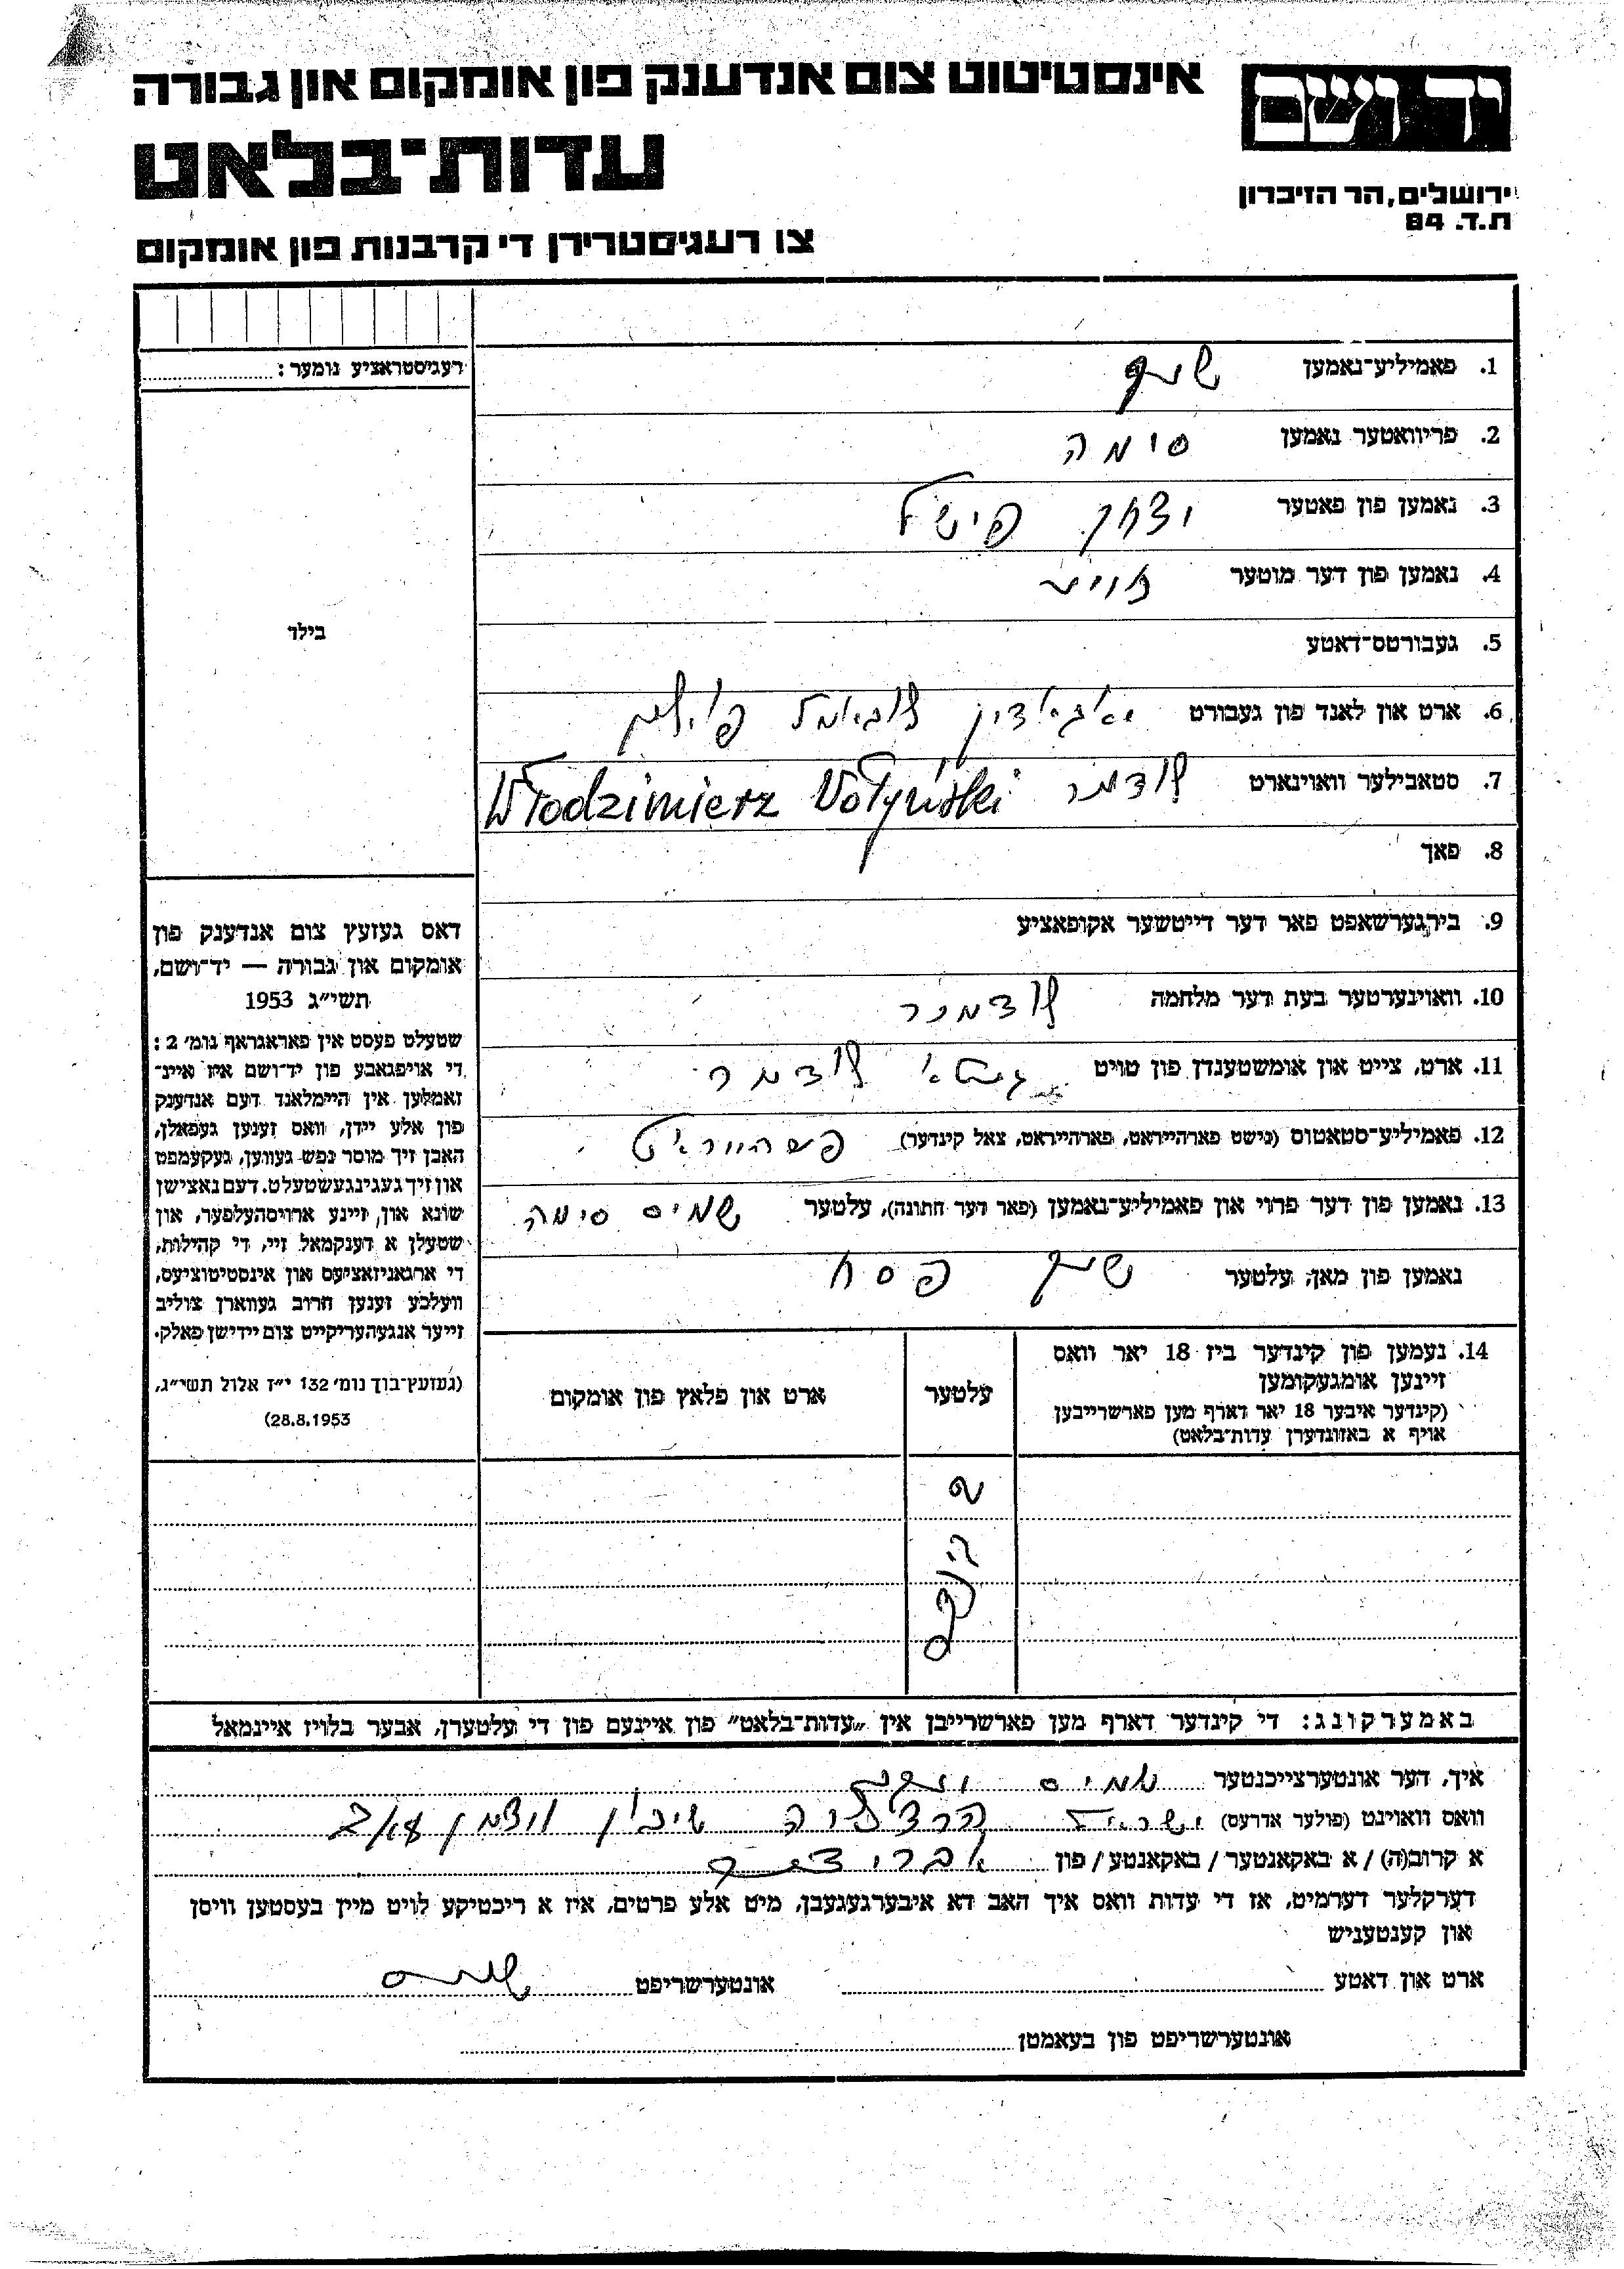 אינסטיטוט צום אנדענק פון אומקום און גבורה
יד ושם
עדות־בלאט
ירושלים, הר הזיכרון
ת.ד. 84
צו רעגיסטרירן די קרבנות פון אומקום
רעגיסטראציע נומער:
1. פאמיליע־נאמען
2. פריוואטער נאמען סימה
3. נאמען פון פאטער יצחק פישל
4. נאמען פון דער מוטער
5. געבורטס־דאטע
6. ארט און לאנד פון געבורט פוילן
7. סטאבילער וואוינארט לודמיר Włodzimierz Wołyński
8. פאך
9. בירגערשאפט פאר דער דייטשער אקופאציע
10. וואוינערטער בעת דער מלחמה לודמיר
11. ארט, צייט און אומשטענדן פון טויט געטא לודמיר
12. פאמיליע־סטאטוס (נישט פארהייראט, פארהייראט, צאל קינדער) פארהייראט
13. נאמען פון דער פרוי און פאמיליע־נאמען (פאר דער חתונה), עלטער שמיס סימה
נאמען פון מאן, עלטער פסח
בילד
דאס געזעץ צום אנדענק פון
אומקום און גבורה — יד־ושם,
תשי״ג 1953
שטעלט פעסט אין פאראגראף נומ׳ 2:
די אויפגאבע פון יד־ושם איז איינ־
זאמלען אין היימלאנד דעם אנדענק
פון אלע יידן, וואס זענען געפאלן,
האבן זיך מוסר נפש געווען, געקעמפט
און זיך געגינגעשטעלט. דעם נאצישן
שונא און זיינע ארויסהעלפער, און
שטעלן א דענקמאל זיי, די קהילות,
די ארגאניזאציעס און אינסטיטוציעס,
וועלכע זענען חרוב געווארן צוליב
זייער אנגעהעריקייט צום יידישן פאלק.
(געזעץ־בוך נומ׳ 132 י״ז אלול תשי״ג,
28.8.1953)
14. נעמען פון קינדער ביז 18 יאר וואס
זיינען אומגעקומען
(קינדער איבער 18 יאר דארף מען פארשרייבן
אויף א באזונדערן עדות־בלאט)
עלטער
ארט און פלאץ פון אומקום
באמערקונג: די קינדער דארף מען פארשרייבן אין „עדות־בלאט״ פון איינעם פון די עלטערן, אבער בלויז איינמאל
איך, דער אונטערצייכנטער שמיס
וואס וואוינט (פולער אדרעס) ישראל הרצליה שיכון ויצמן
א קרוב(ה) / א באקאנטער / באקאנטע / פון
דערקלער דערמיט, אז די עדות וואס איך האב דא איבערגעגעבן, מיט אלע פרטים, איז א ריכטיקע לויט מיין בעסטען וויסן
און קענטעניש
ארט און דאטע
אונטערשריפט שמיס
אונטערשריפט פון בעאמטן